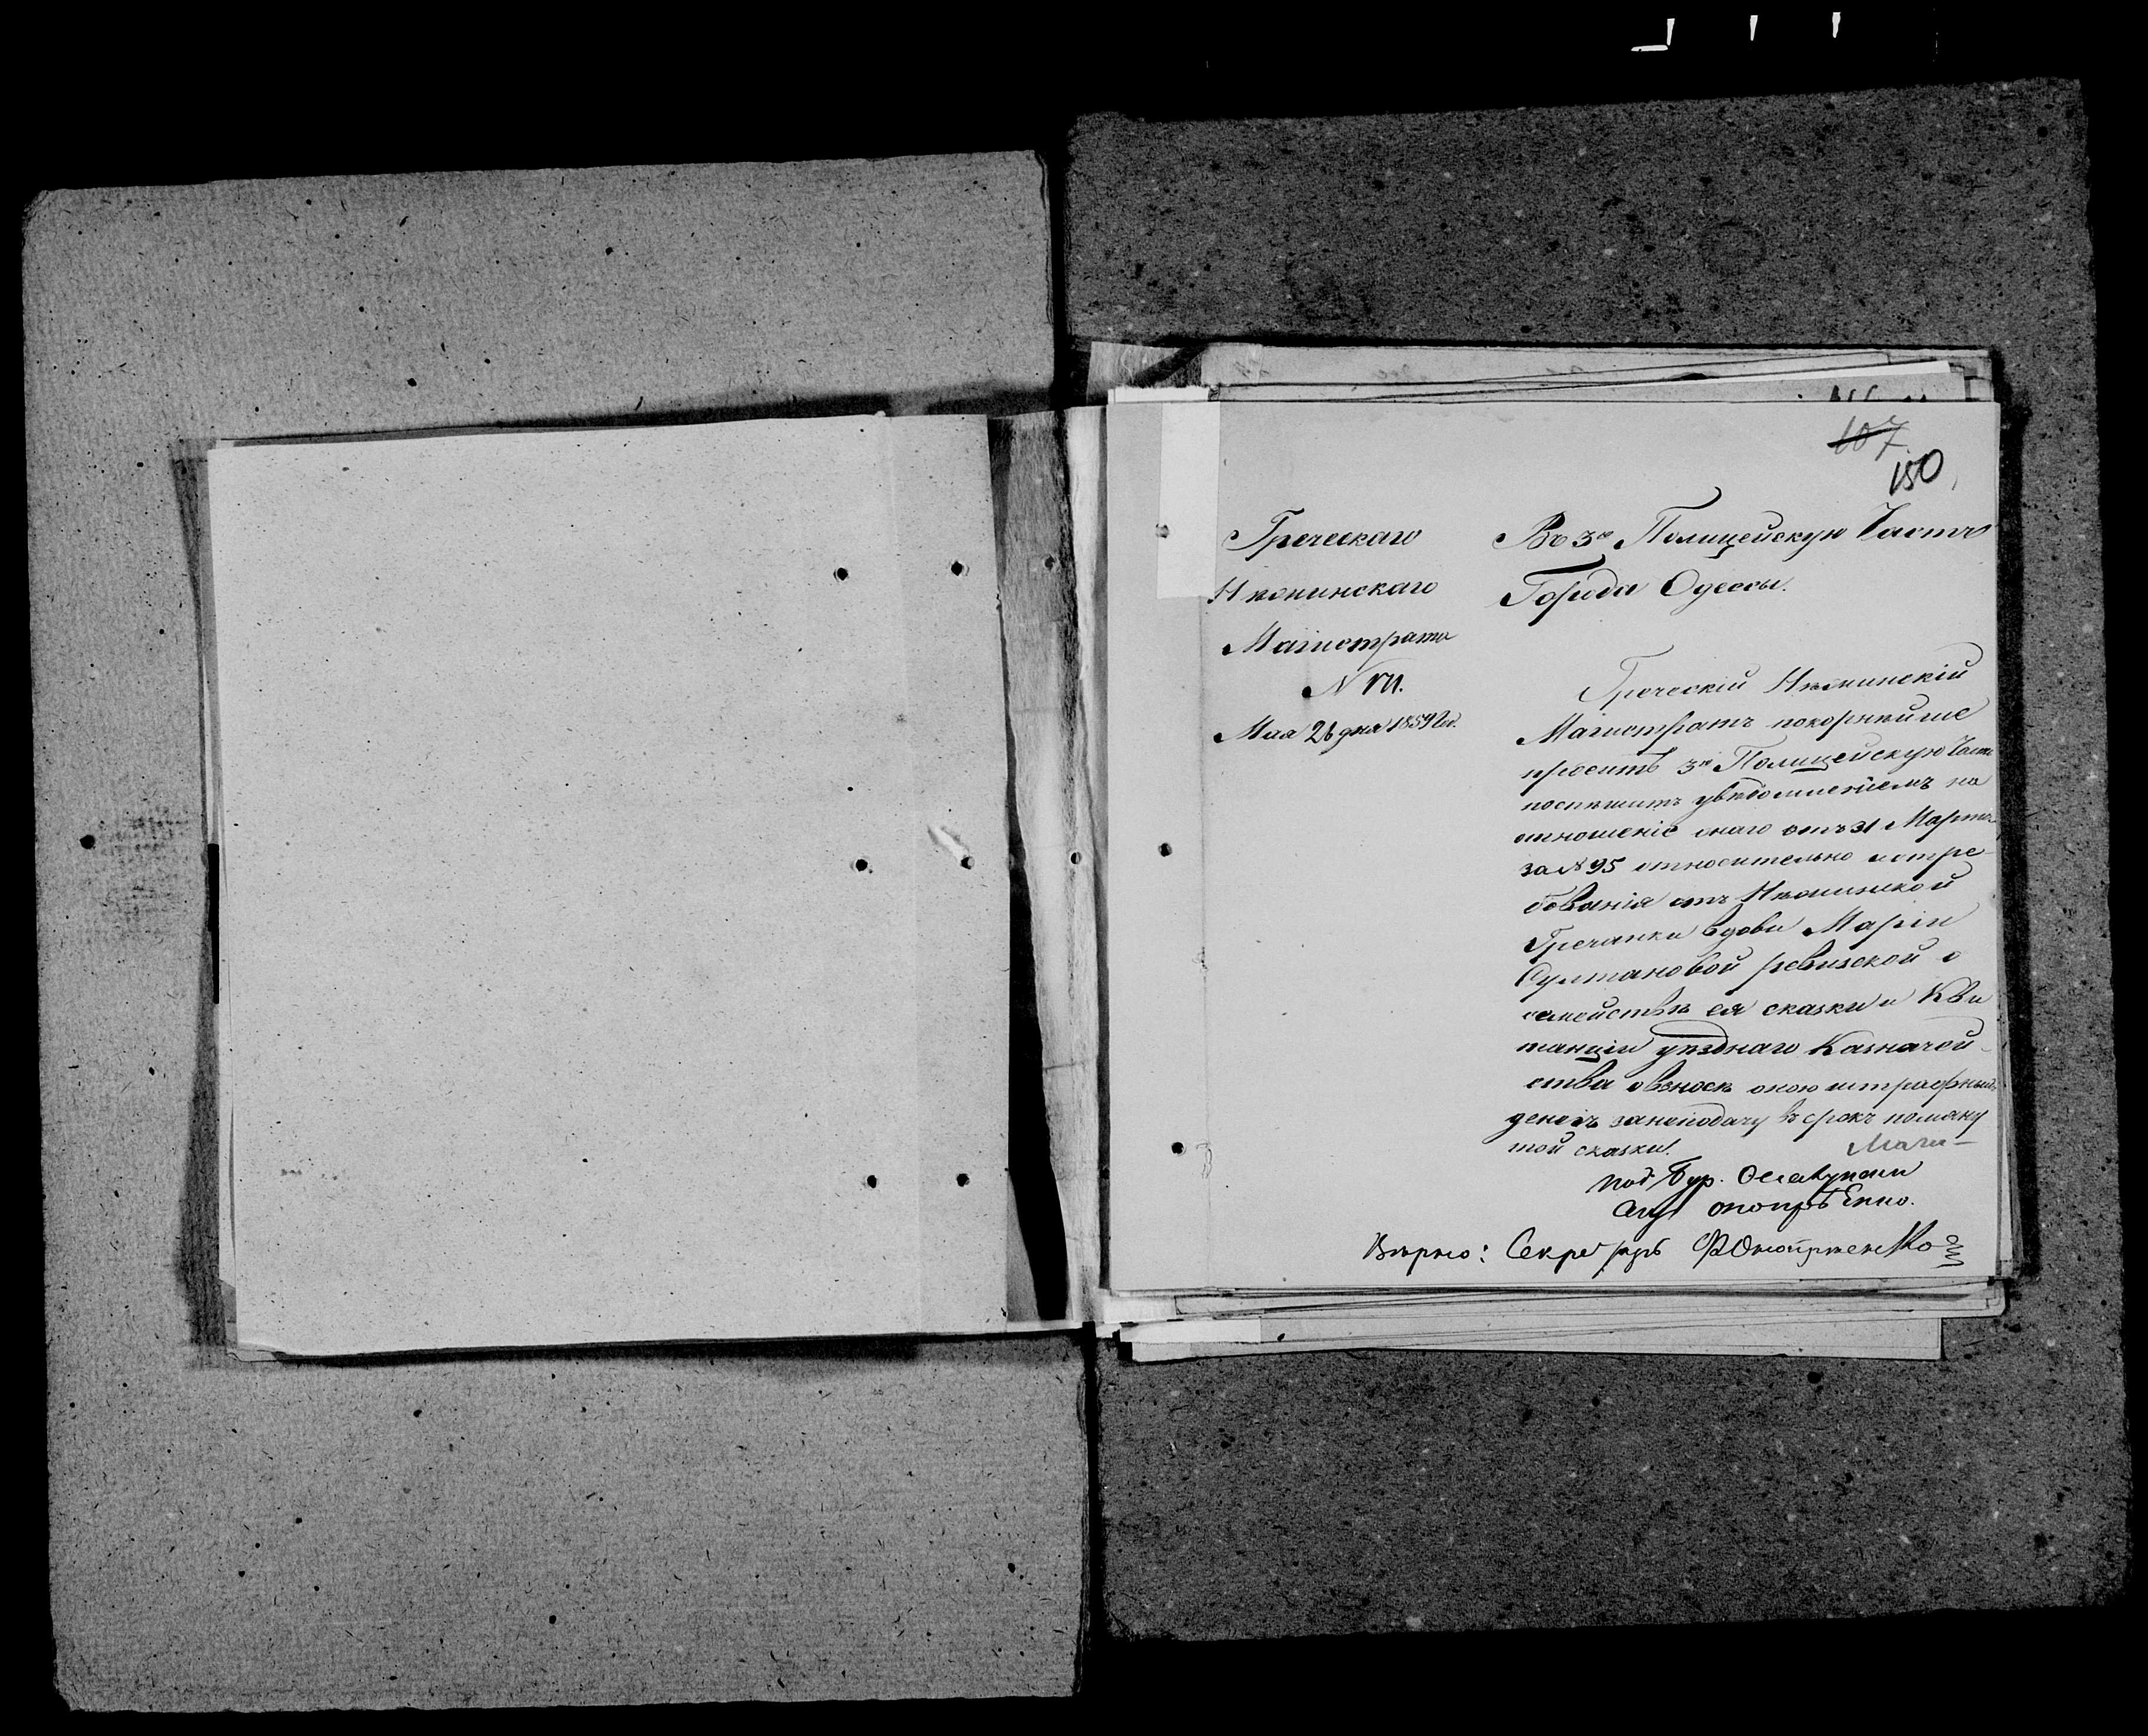 107
150
Греческаго
Нѣжинскаго
Магистрата
N 171.
Мая 26 дня 1859 год.
Въ 3ю Полицейскую Часть
Города Одессы.
Греческій Нѣжинскій
Магистратъ покорнѣйше
проситъ 3ю Полицейскую Часть
поспѣшить увѣдомленіемъ на
отношеніе онаго отъ 31 Марта
за № 95 относительно истре-
бованія отъ Нѣжинской
Гречанки вдови Маріи
Султановой ревизской о
семействѣ ея сказки и Кви
танціи уѣзднаго Казначей-
ства о взносѣ оною штрафныхъ
денегъ за неподачу въ срокъ помяну
той сказки.
Под
Вѣрно: Секретарь